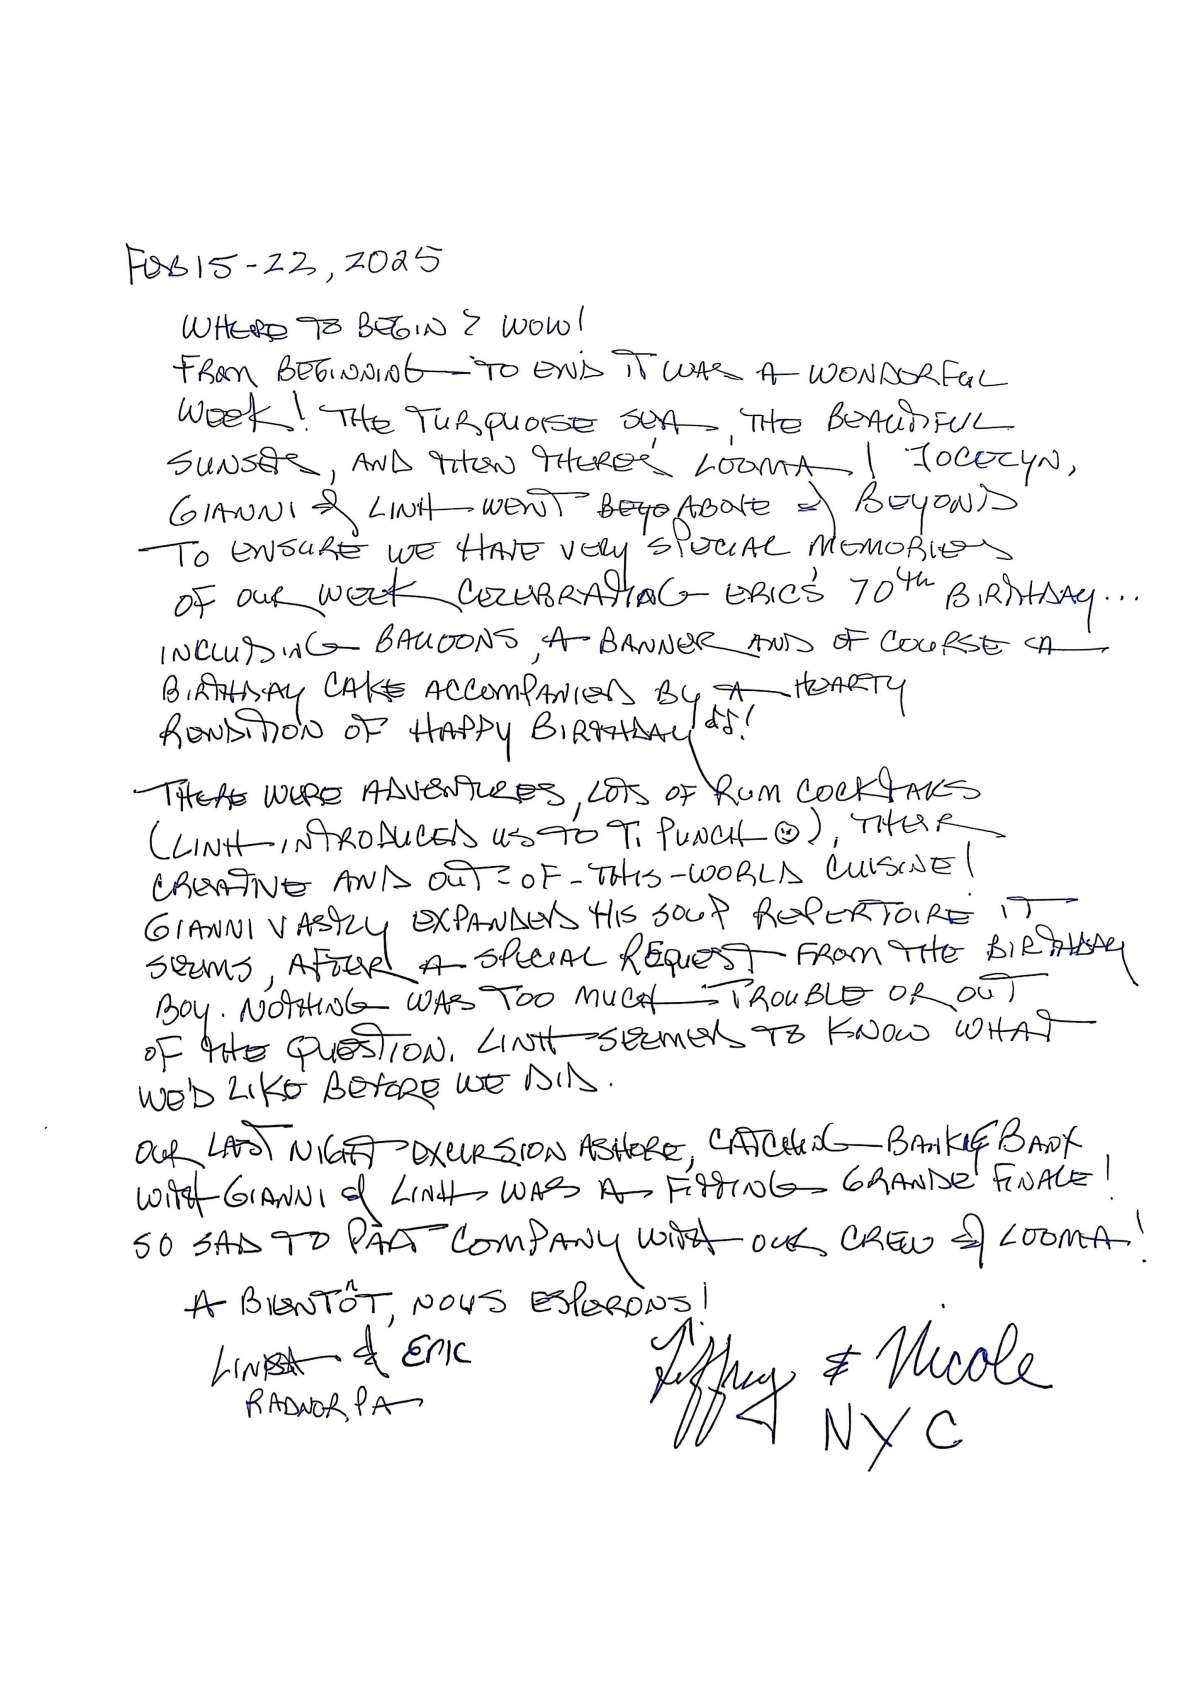 FEB 15-22, 2025
WHERE TO BEGIN? WOW!
FROM BEGINNING TO END IT WAS A WONDERFUL
WEEK! THE TURQUOISE SEA, THE BEAUTIFUL
SUNSETS, AND THEN THERE'S LOOMA! JOCELYN,
GIANNI & LINH WENT BEYO ABOVE & BEYOND
TO ENSURE WE HAVE VERY SPECIAL MEMORIES
OF OUR WEEK CELEBRATING ERIC'S 70TH BIRTHDAY...
INCLUDING BALLOONS, A BANNER AND OF COURSE A
BIRTHDAY CAKE ACCOMPANIED BY A HEARTY
RENDITION OF HAPPY BIRTHDAY ♫!
THERE WERE ADVENTURES, LOTS OF RUM COCKTAILS
(LINH INTRODUCED US TO TI PUNCH ☺), THEIR
CREATIVE AND OUT-OF-THIS-WORLD CUISINE!
GIANNI VASTLY EXPANDED HIS SOUP REPERTOIRE IT
SEEMS, AFTER A SPECIAL REQUEST FROM THE BIRTHDAY
BOY. NOTHING WAS TOO MUCH TROUBLE OR OUT
OF THE QUESTION. LINH SEEMED TO KNOW WHAT
WE'D LIKE BEFORE WE DID.
OUR LAST NIGHT EXCURSION ASHORE, CATCHING BANKIE BANX
WITH GIANNI & LINH WAS A FITTING GRANDE FINALE!
SO SAD TO PART COMPANY WITH OUR CREW & LOOMA!
A BIENTÔT, NOUS ESPERONS!
LINDA & ERIC
RADNOR, PA
Jeffrey & Nicole
NYC